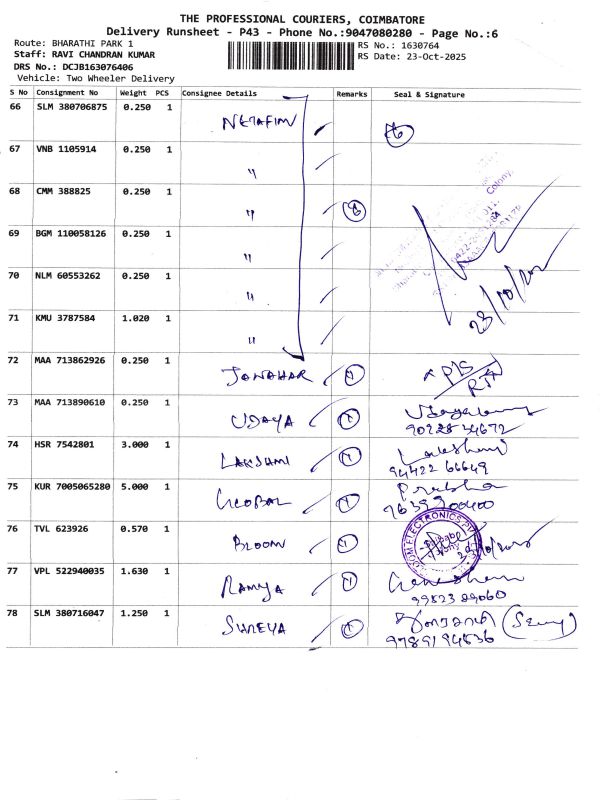 THE PROFESSIONAL COURIERS, COIMBATORE
Delivery Runsheet - P43 - Phone No.:9047080280 - Page No.:6
Route: BHARATHI PARK 1
Staff: RAVI CHANDRAN KUMAR
DRS No.: DCJB163076406
Vehicle: Two Wheeler Delivery
RS No.: 1630764
RS Date: 23-Oct-2025
S No Consignment No Weight PCS Consignee Details Remarks Seal & Signature
66 SLM 380706875 0.250 1 NETAFIM 6
67 VNB 1105914 0.250 1 "
68 CMM 388825 0.250 1 " 6
69 BGM 110058126 0.250 1 "
70 NLM 60553262 0.250 1 "
71 KMU 3787584 1.020 1 "
23/10/202
72 MAA 713862926 0.250 1 JAWAHAR 1
73 MAA 713890610 0.250 1 UDAYA 1
74 HSR 7542801 3.000 1 LAKSHMI 1 Lakshmi
94422 66649
75 KUR 7005065280 5.000 1 GLOBAL 1 Prabha
76 TVL 623926 0.570 1 BLOOM 1
77 VPL 522940035 1.630 1 RAMYA 1
99523 89060
78 SLM 380716047 1.250 1 SURYA 1
9789194836